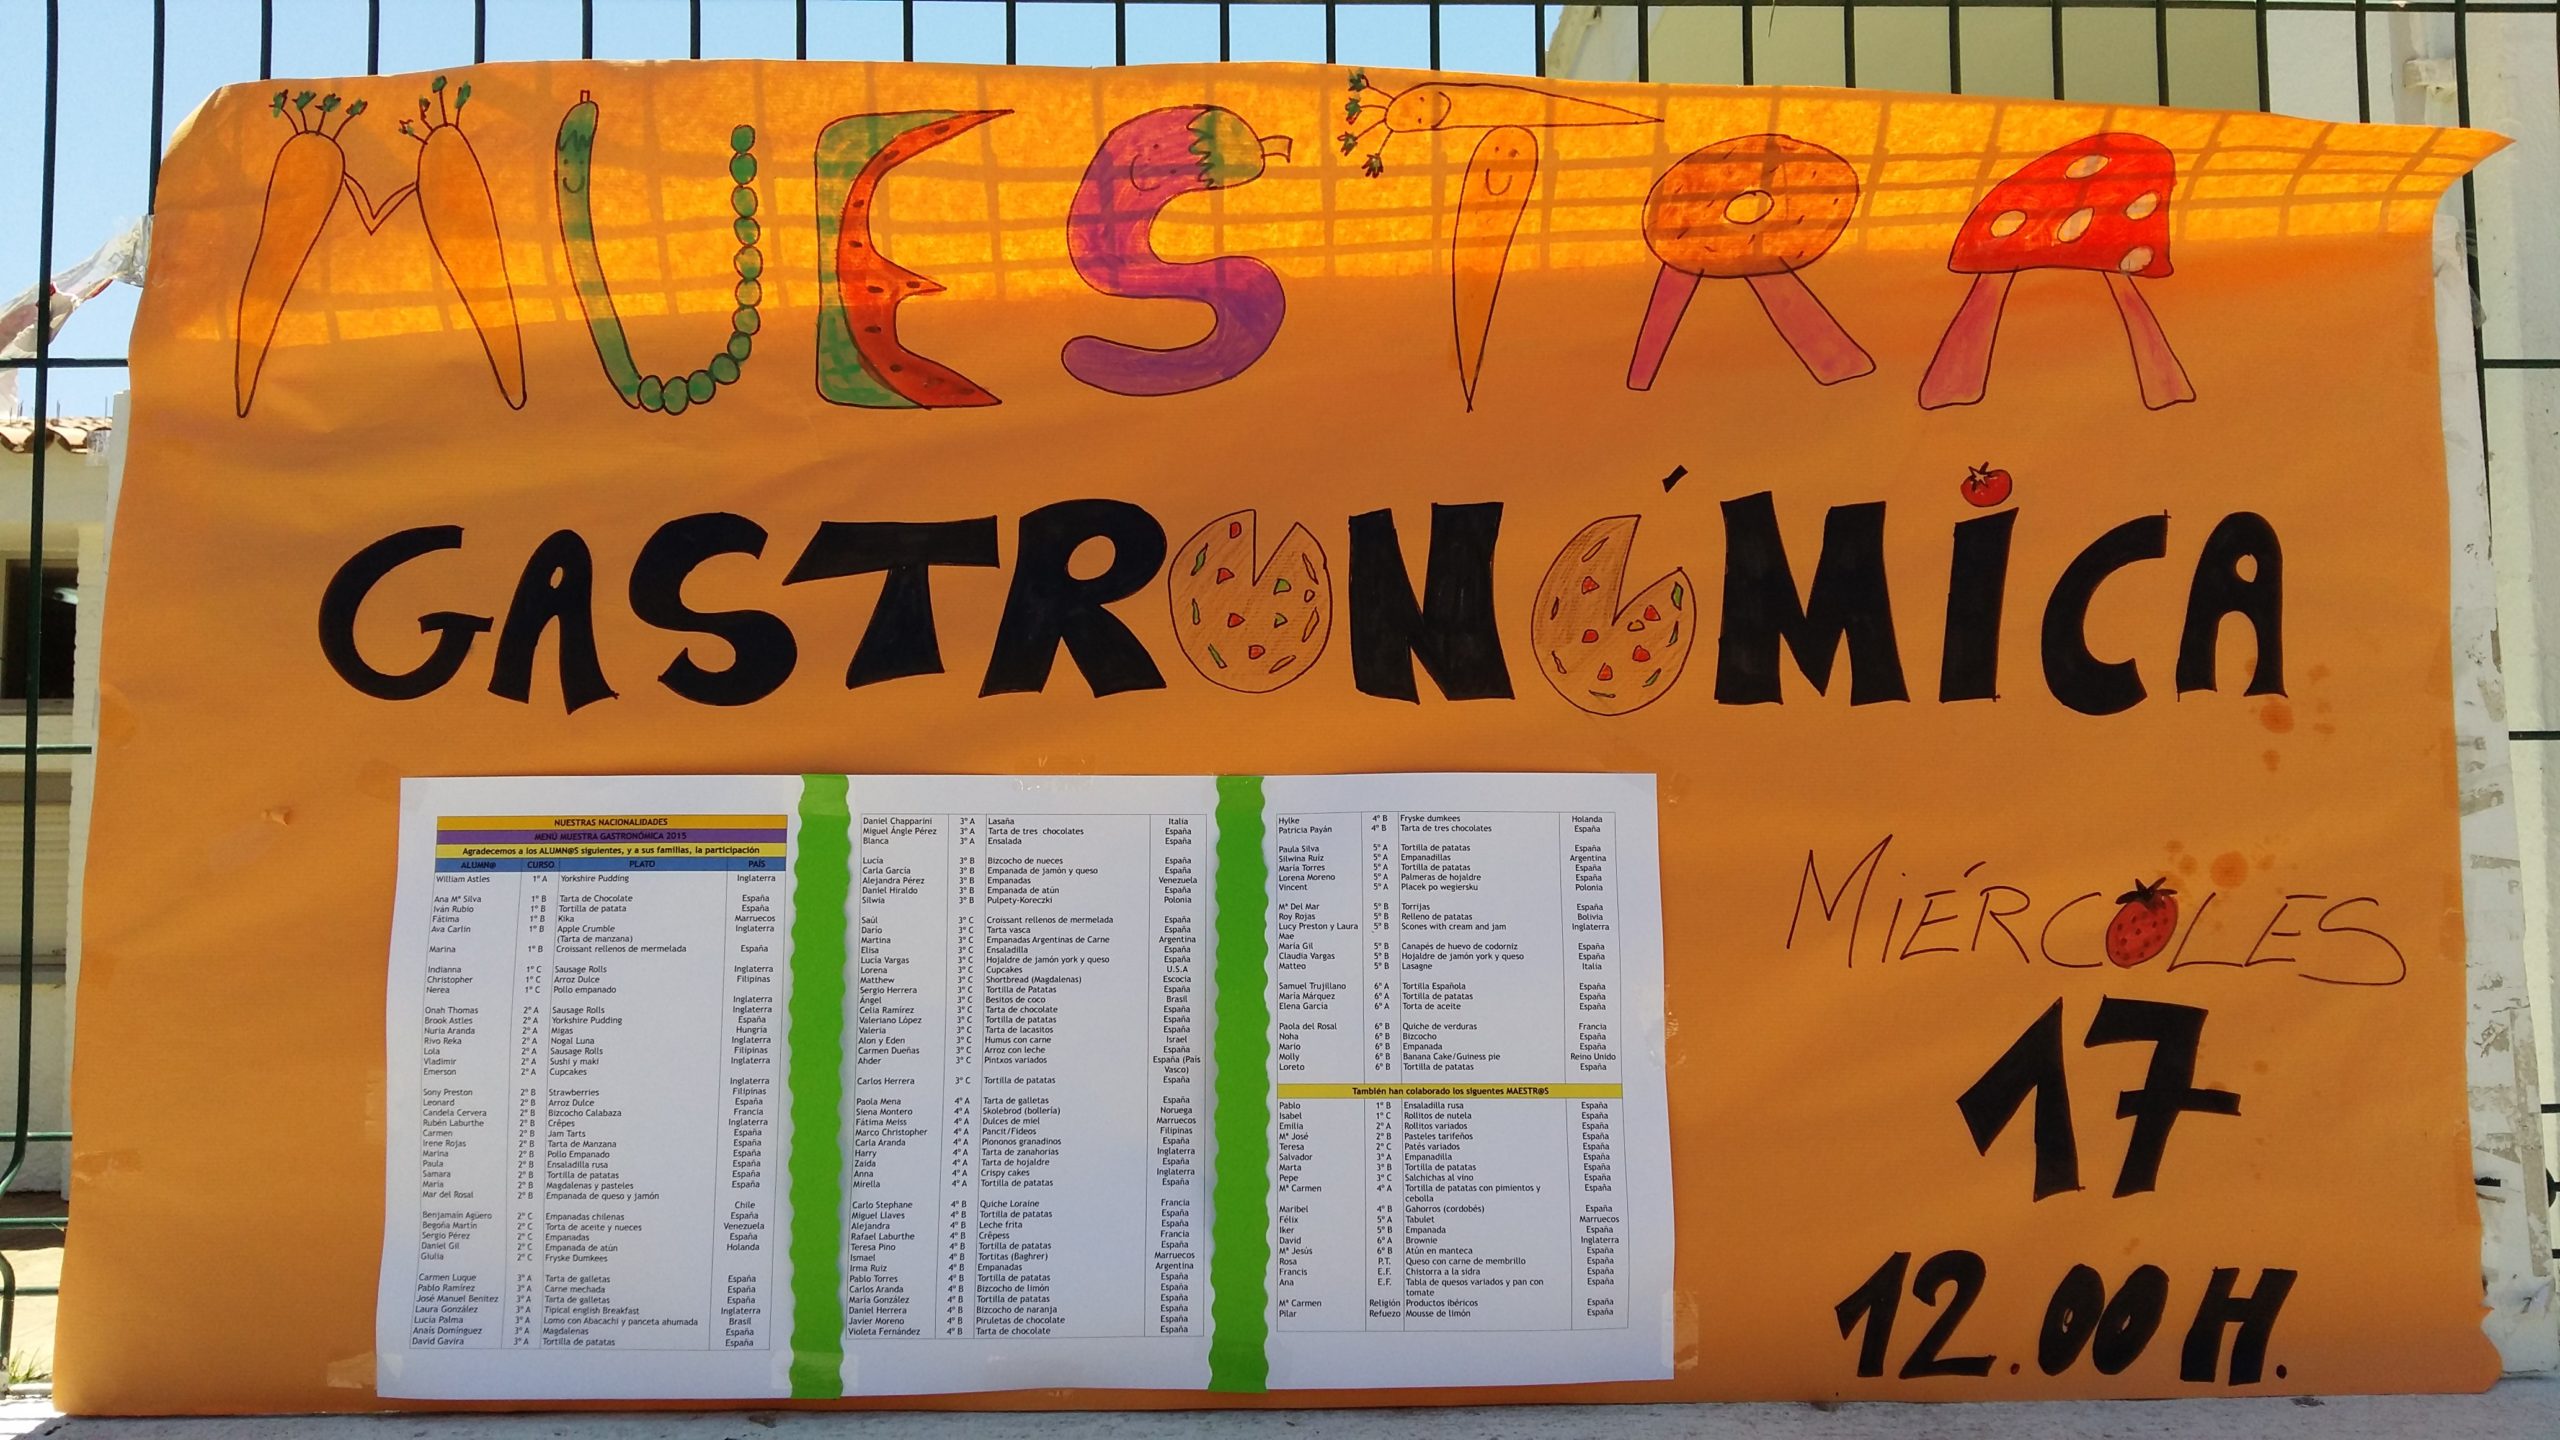 MUESTRA
GASTRONÓMICA
MIÉRCOLES
17
12.00 H.
NUESTRAS NACIONALIDADES
MENÚ MUESTRA GASTRONÓMICA 2015
Agradecemos a los ALUMN@S siguientes, y a sus familias, la participación
ALUMN@ CURSO PLATO PAÍS
William Astles 1º A Yorkshire Pudding Inglaterra
Ana Mª Silva 1º B Tarta de Chocolate España
Iván Rubio 1º B Tortilla de patata España
Fátima 1º B Kika Marruecos
Ava Carlin 1º B Apple Crumble Inglaterra
(Tarta de manzana)
Marina 1º B Croissant rellenos de mermelada España
Indianna 1º C Sausage Rolls Inglaterra
Christopher 1º C Arroz Dulce Filipinas
Nerea 1º C Pollo empanado
Inglaterra
Onah Thomas 2º A Sausage Rolls Inglaterra
Brook Astles 2º A Yorkshire Pudding España
Nuria Aranda 2º A Migas Hungría
Rivo Reka 2º A Nogal Luna Inglaterra
Lola 2º A Sausage Rolls Filipinas
Vladimir 2º A Sushi y maki Inglaterra
Emerson 2º A Cupcakes
Inglaterra
Sony Preston 2º B Strawberries Filipinas
Leonard 2º B Arroz Dulce España
Candela Cervera 2º B Bizcocho Calabaza Francia
Rubén Laburthe 2º B Crêpes Inglaterra
Carmen 2º B Jam Tarts España
Irene Rojas 2º B Tarta de Manzana España
Marina 2º B Pollo Empanado España
Paula 2º B Ensaladilla rusa España
Samara 2º B Tortilla de patatas España
Maria 2º B Magdalenas y pasteles España
Mar del Rosal 2º B Empanada de queso y jamón
Chile
Benjamain Agüero 2º C Empanadas chilenas España
Begoña Martín 2º C Torta de aceite y nueces Venezuela
Sergio Pérez 2º C Empanadas España
Daniel Gil 2º C Empanada de atún Holanda
Giulia 2º C Fryske Dumkees
Carmen Luque 3º A Tarta de galletas España
Pablo Ramírez 3º A Carne mechada España
José Manuel Benítez 3º A Tarta de galletas España
Laura González 3º A Tipical english Breakfast Inglaterra
Lucía Palma 3º A Lomo con Abacachi y panceta ahumada Brasil
Anaís Domínguez 3º A Magdalenas España
David Gavira 3º A Tortilla de patatas España
Daniel Chapparini 3º A Lasaña Italia
Miguel Ángle Pérez 3º A Tarta de tres chocolates España
Blanca 3º A Ensalada España
Lucía 3º B Bizcocho de nueces España
Carla García 3º B Empanada de jamón y queso España
Alejandra Pérez 3º B Empanadas Venezuela
Daniel Hiraldo 3º B Empanada de atún España
Silwia 3º B Pulpety-Koreczki Polonia
Saúl 3º C Croissant rellenos de mermelada España
Darío 3º C Tarta vasca España
Martina 3º C Empanadas Argentinas de Carne Argentina
Elisa 3º C Ensaladilla España
Lucía Vargas 3º C Hojaldre de jamón york y queso España
Lorena 3º C Cupcakes U.S.A
Matthew 3º C Shortbread (Magdalenas) Escocia
Sergio Herrera 3º C Tortilla de Patatas España
Ángel 3º C Besitos de coco Brasil
Celia Ramírez 3º C Tarta de chocolate España
Valeriano López 3º C Tortilla de patatas España
Valeria 3º C Tarta de lacasitos España
Alon y Eden 3º C Humus con carne Israel
Carmen Dueñas 3º C Arroz con leche España
Ahder 3º C Pintxos variados España (País
Vasco)
Carlos Herrera 3º C Tortilla de patatas España
Paola Mena 4º A Tarta de galletas España
Siena Montero 4º A Skolebrod (bollería) Noruega
Fátima Meiss 4º A Dulces de miel Marruecos
Marco Christopher 4º A Pancit/Fideos Filipinas
Carla Aranda 4º A Piononos granadinos España
Harry 4º A Tarta de zanahorias Inglaterra
Zaida 4º A Tarta de hojaldre España
Anna 4º A Crispy cakes Inglaterra
Mirella 4º A Tortilla de patatas España
Carlo Stephane 4º B Quiche Loraine Francia
Miguel Llaves 4º B Tortilla de patatas España
Alejandra 4º B Leche frita España
Rafael Laburthe 4º B Crêpess Francia
Teresa Pino 4º B Tortilla de patatas España
Ismael 4º B Tortitas (Baghrer) Marruecos
Irma Ruiz 4º B Empanadas Argentina
Pablo Torres 4º B Tortilla de patatas España
Carlos Aranda 4º B Bizcocho de limón España
María González 4º B Tortilla de patatas España
Daniel Herrera 4º B Bizcocho de naranja España
Javier Moreno 4º B Piruletas de chocolate España
Violeta Fernández 4º B Tarta de chocolate España
Hylke 4º B Fryske dumkees Holanda
Patricia Payán 4º B Tarta de tres chocolates España
Paula Silva 5º A Tortilla de patatas España
Silwina Ruiz 5º A Empanadillas Argentina
María Torres 5º A Tortilla de patatas España
Lorena Moreno 5º A Palmeras de hojaldre España
Vincent 5º A Placek po wegiersku Polonia
Mª Del Mar 5º B Torrijas España
Roy Rojas 5º B Relleno de patatas Bolivia
Lucy Preston y Laura 5º B Scones with cream and jam Inglaterra
Mae
María Gil 5º B Canapés de huevo de codorniz España
Claudia Vargas 5º B Hojaldre de jamón york y queso España
Matteo 5º B Lasagne Italia
Samuel Trujillano 6º A Tortilla Española España
María Márquez 6º A Tortilla de patatas España
Elena García 6º A Torta de aceite España
Paola del Rosal 6º B Quiche de verduras Francia
Noha 6º B Bizcocho España
Mario 6º B Empanada España
Molly 6º B Banana Cake/Guiness pie Reino Unido
Loreto 6º B Tortilla de patatas España
También han colaborado los siguentes MAESTR@S
Pablo 1º B Ensaladilla rusa España
Isabel 1º C Rollitos de nutela España
Emilia 2º A Rollitos variados España
Mª José 2º B Pasteles tarifeños España
Teresa 2º C Patés variados España
Salvador 3º A Empanadilla España
Marta 3º B Tortilla de patatas España
Pepe 3º C Salchichas al vino España
Mª Carmen 4º A Tortilla de patatas con pimientos y España
cebolla
Maribel 4º B Gahorros (cordobés) España
Félix 5º A Tabulet Marruecos
Iker 5º B Empanada España
David 6º A Brownie Inglaterra
Mª Jesús 6º B Atún en manteca España
Rosa P.T. Queso con carne de membrillo España
Francis E.F. Chistorra a la sidra España
Ana E.F. Tabla de quesos variados y pan con España
tomate
Mª Carmen Religión Productos ibéricos España
Pilar Refuezo Mousse de limón España